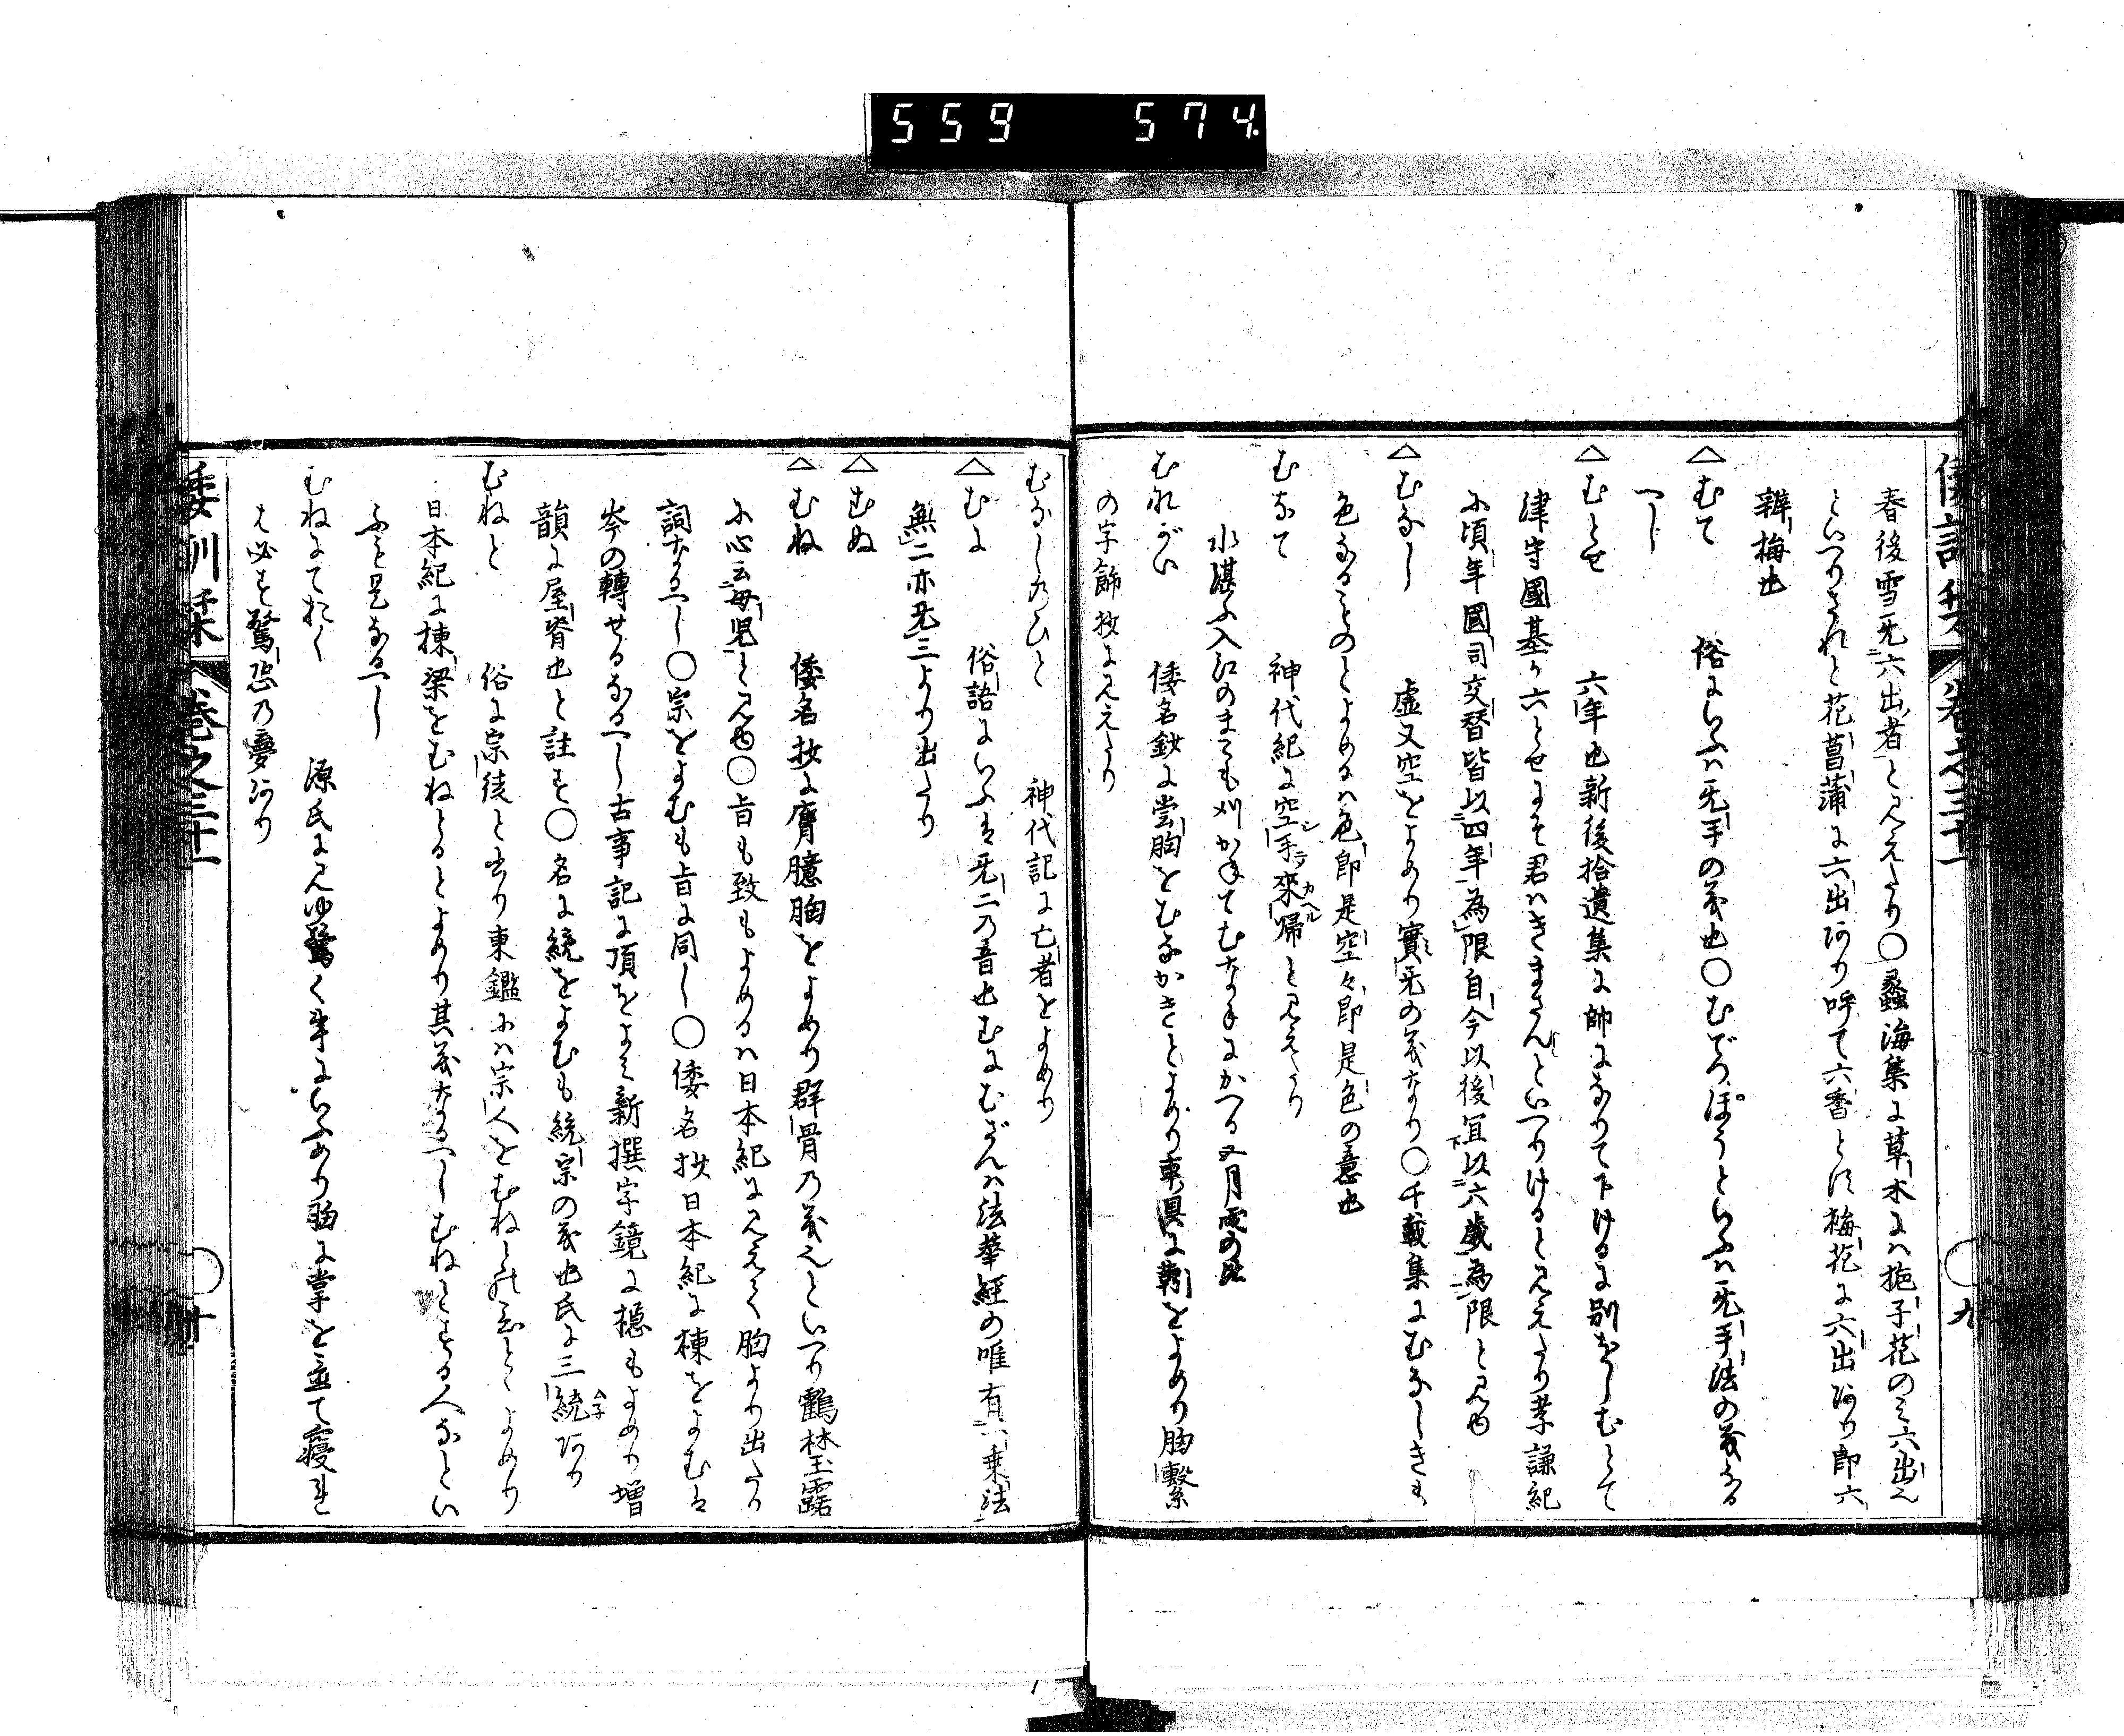 559 574.
倭訓栞 巻之三十一 九
春後雪无六出者と見えたり○蠡海集に草木にハ梔子花のミ六出也
といへりされと花菖蒲に六出あり呼て六香とす梅花に六出あり即六
辨梅也
△むて 俗にいふハ无手の義也○むでつぽうといふハ无手法の義なる
へし
△むとせ 六年也新後拾遺集に帥になりて下ける に別をしむとて
津守國基か六とせにそ君ハきまさんといへりけると見えたり孝謙紀
に頃年國司交替皆以四年為限自今以後宜以六歳為限と見ゆ
△むなし 虚又空をよめり實无の義なり○千載集にむなしきも
色なることのとよめるハ色即是空々即是色の意也
むなて 神代紀に空手來歸と見えたり
水湛ふ入江のまこも刈かねてむなてにかへる五月雨の比
むながい 倭名鈔に當胸をむなかきとよめり車具に靷をよめり胸繫
の字飾抄に見えたり
むなしのひと 神代記に亡者をよめり
△むに 俗語にいふは无二の音也むにむざんハ法華經の唯有一乗法
無二亦无三より出たり
△むぬ
△むね 倭名抄に膺臆胸をよめり群骨の義也といへり鶴林玉露
に心云母児と見ゆ○旨も致もよめるハ日本紀に見えて胸より出たる
詞なるへし○宗をよむも旨に同し○倭名抄日本紀に棟をよむは
岑の轉せるなるへし古事記に頂をよミ新撰字鏡に檼もよめり増
韻に屋脊也と註す○名に統をよむも統宗の義也氏に三統あり
むねと 俗に宗徒と書り東鑑にハ宗人をむねとのひとゝよめり
日本紀に棟梁をむねとるとよめり其義なるへしむねとする人なとい
ふも是なるへし
むねにておく 源氏に見ゆ驚く事にいふあり胸に掌を並て寝れ
は必す驚恐の夢あり
倭訓栞 巻之三十一 十